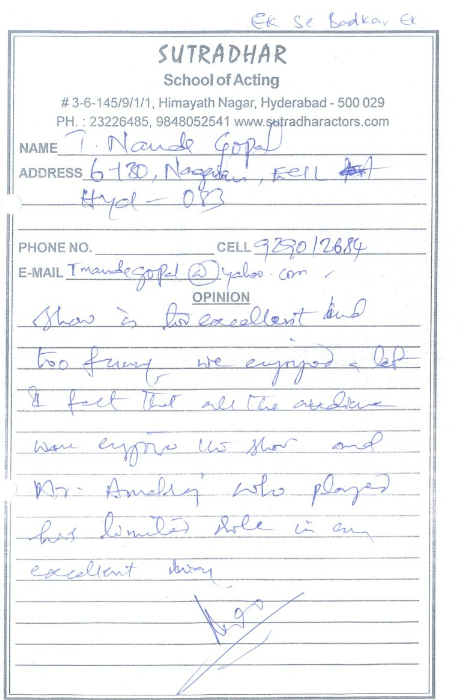 Ek Se Badkar Ek
SUTRADHAR
School of Acting
# 3-6-145/9/1/1, Himayath Nagar, Hyderabad - 500 029
PH. : 23226485, 9848052541 www.sutradharactors.com
NAME T. Nande Gopal
ADDRESS 6-180, ECIL
Hyd - 083
PHONE NO. CELL 929012684
E-MAIL Tnandegopal@yahoo.com
OPINION
Show is excellent and
too funny we enjoyed a lot
I felt that all the audience
were the show and
Mr. who played
his limited role in an
excellent way